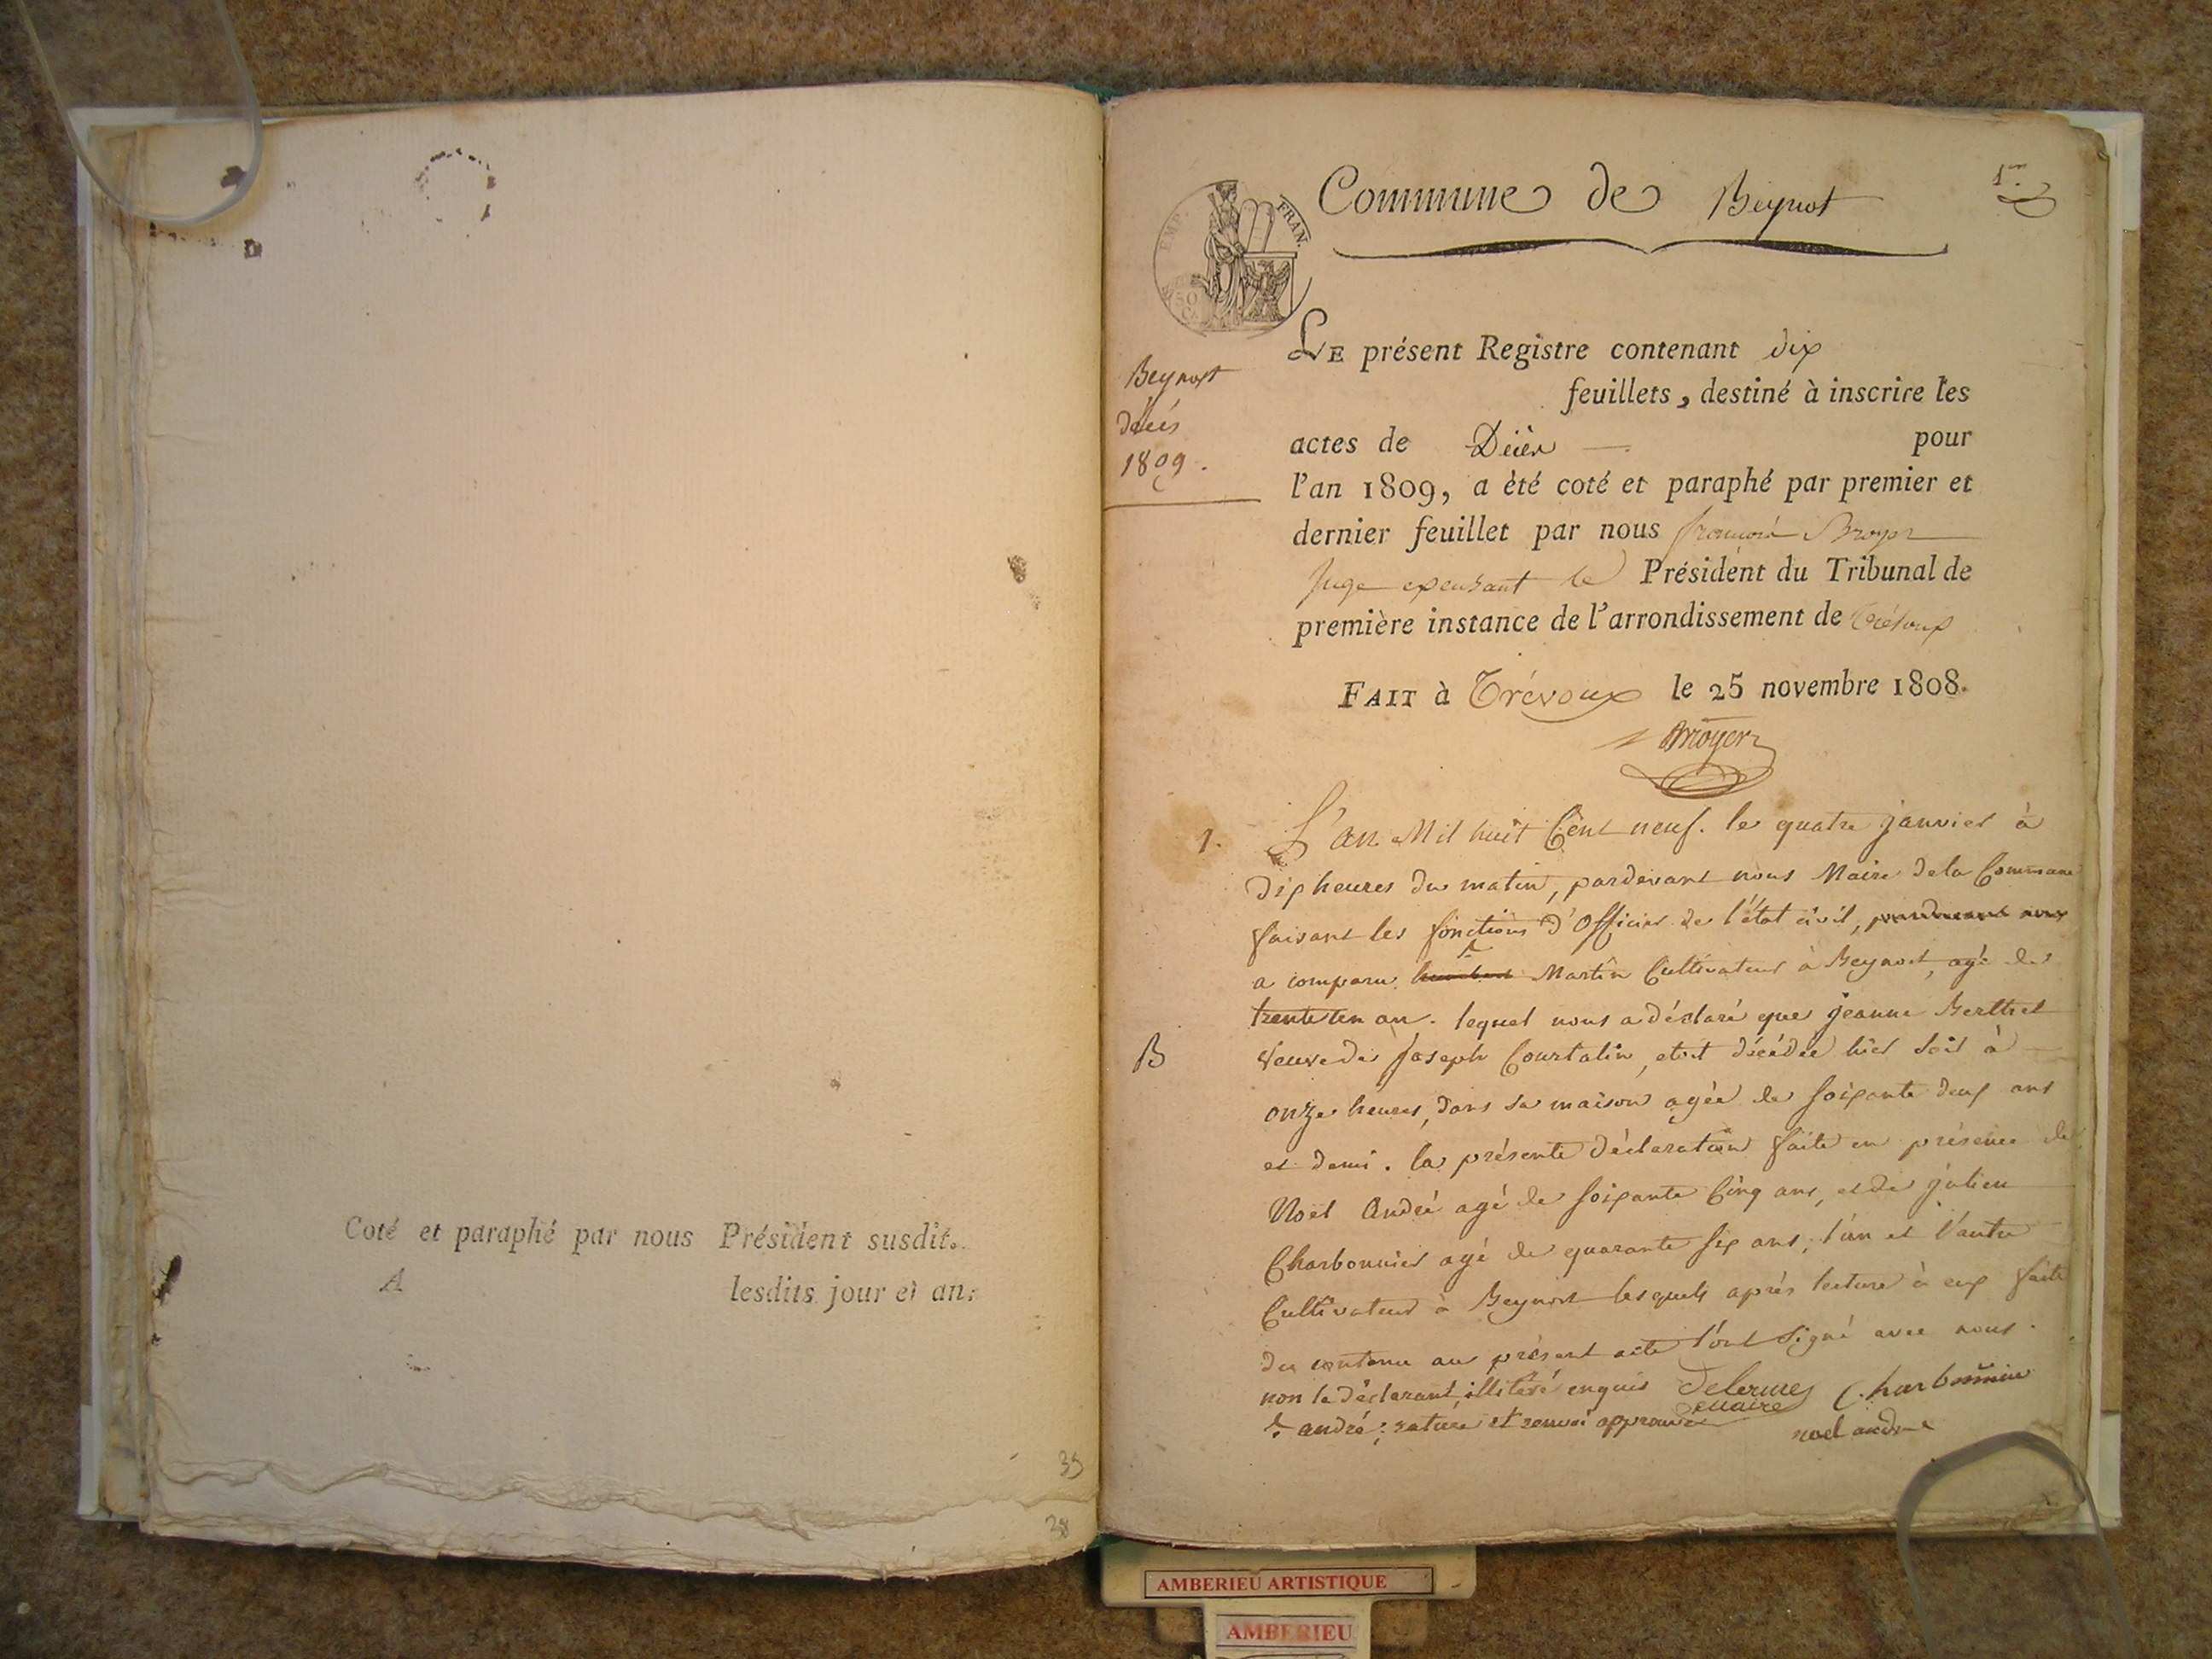 Coté et paraphé par nous Président susdit.
A lesdits jour et an.
39
38
Commune de Beynost
1er
EMP. FRAN.
50
C.
Beynost
décès
1809.
LE présent Registre contenant dix
feuillets, destiné à inscrire les
actes de Décès pour
l'an 1809, a été coté et paraphé par premier et
dernier feuillet par nous françois Broyer
Juge exerçant le Président du Tribunal de
première instance de l'arrondissement de Trévoux
FAIT à Trévoux le 25 novembre 1808.
Broyer
1. L'an Mil huit Cent neuf. le quatre janvier à
dix heures du matin, pardevant nous Maire de la Commune
faisant les fonctions d'Officier de l'état civil,
a comparu Martin Cultivateur à Beynost, agé de
ans. lequel nous a déclaré que jeanne Berthet
B
veuve de Joseph Courtalin, etoit décédée hier soir à
onze heures, dans sa maison agée de soixante deux ans
et demi. la présente déclaration faite en présence de
Noël André agé de soixante Cinq ans, et de julien
Charbonnier agé de quarante six ans, l'un et l'autre
Cultivateurs à Beynost lesquels après lecture à eux faite
du contenu au présent acte l'ont signé avec nous.
non le déclarant, illitéré enquis
maire
Charbonnier
+ andré : rature et renvoi approuvé
noel andre
AMBERIEU ARTISTIQUE
AMBERIEU